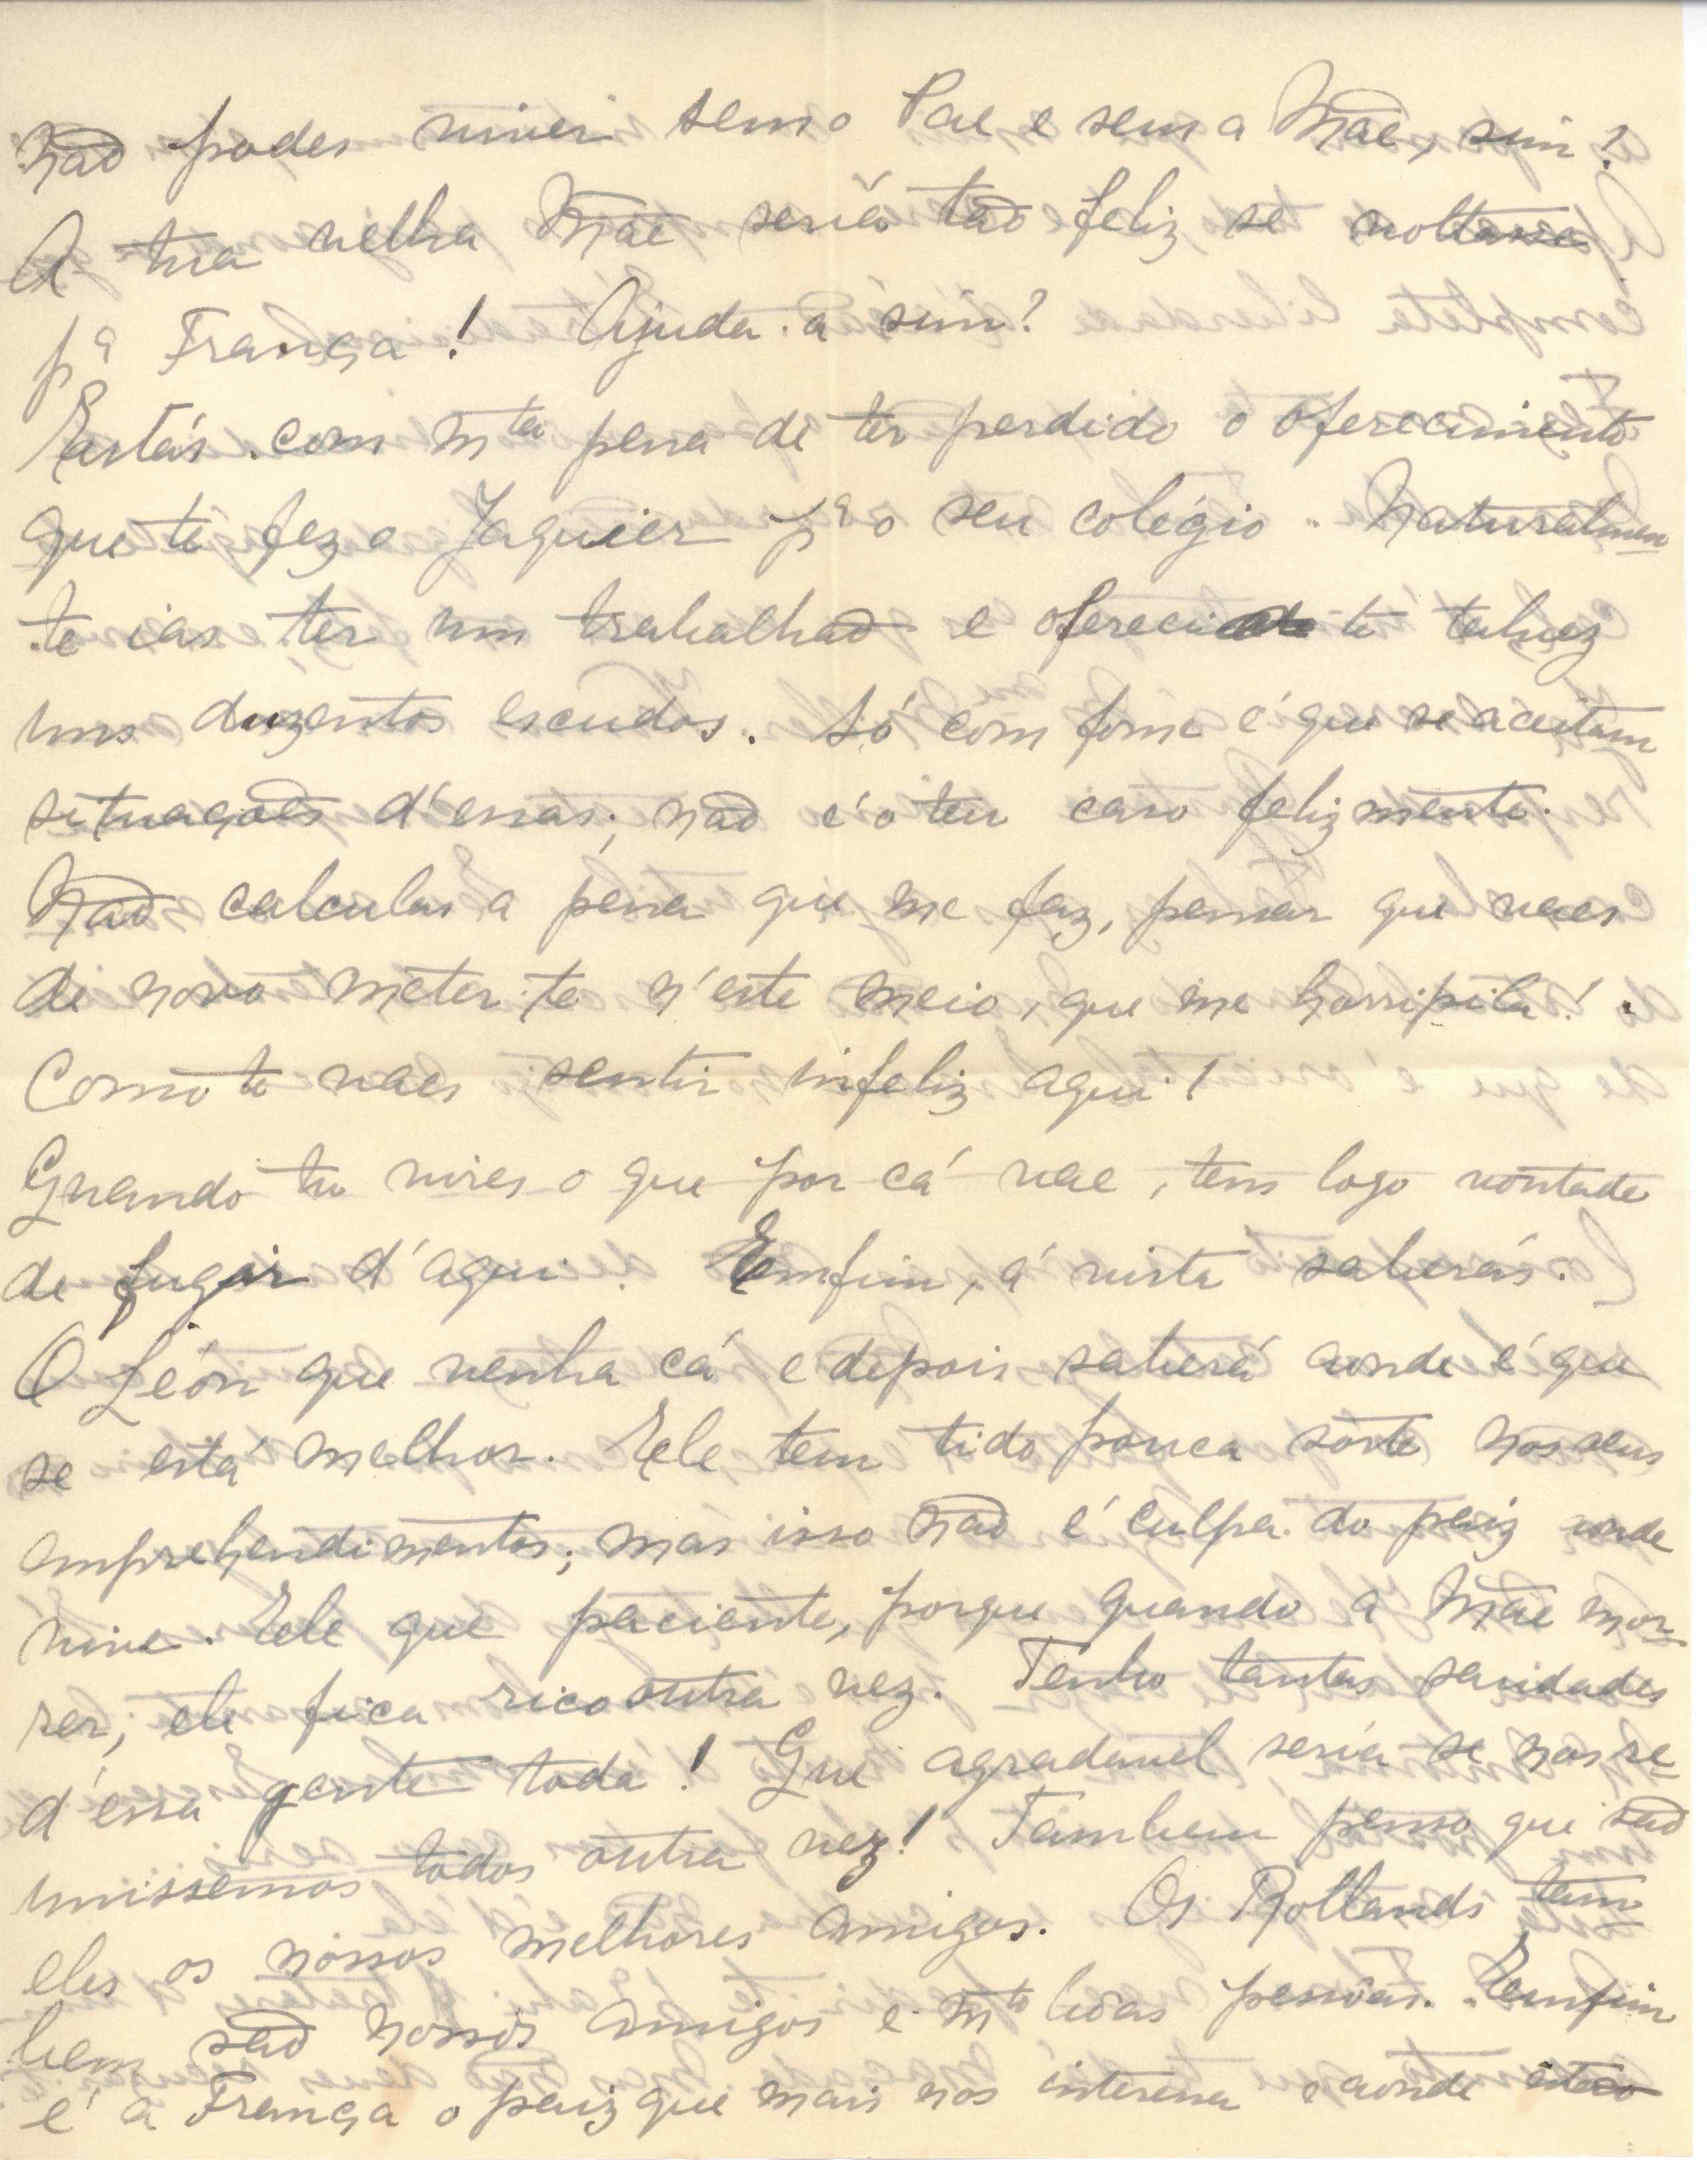 Não podes viver sem o Pae e sem a Mãe, sim?
A tua velha Mãe seria tão feliz se voltasse
pª França! Ajuda-a sim?
Estás com mta pena de ter perdido o oferecimento
que te fez o Jaquier pª o seu colégio. Naturalmen
te ias ter um trabalhão e oferecia te talvez
uns duzentos escudos. Só com fome é que se aceitam
situações d'essas; não é o teu caso felizmente.
Não calculas a pena que me faz, pensar que vaes
de novo meter-te n'este meio, que me horripila!
Como te vaes sentir infeliz aqui!
Quando tu vires o que por cá vae, tens logo vontade
de fugir d'aqui. Emfim, á vista saberás.
O Léon que venha cá e depois saberá aonde é que
se está melhor. Ele tem tido pouca sorte nos seus
emprehendimentos; mas isso não é culpa do paiz onde
vive. Ele que paciente, porque quando a Mãe mor
rer, ele fica rico outra vez. Tenho tantas saudades
d'essa gente toda! Que agradavel seria se nos re
unissemos todos outra vez! Tambem penso que são
eles os nossos melhores amigos. Os Rollands tam
bem são nossos amigos e mto bôas pessôas. Emfim
é a França o paiz que mais nos interessa e aonde